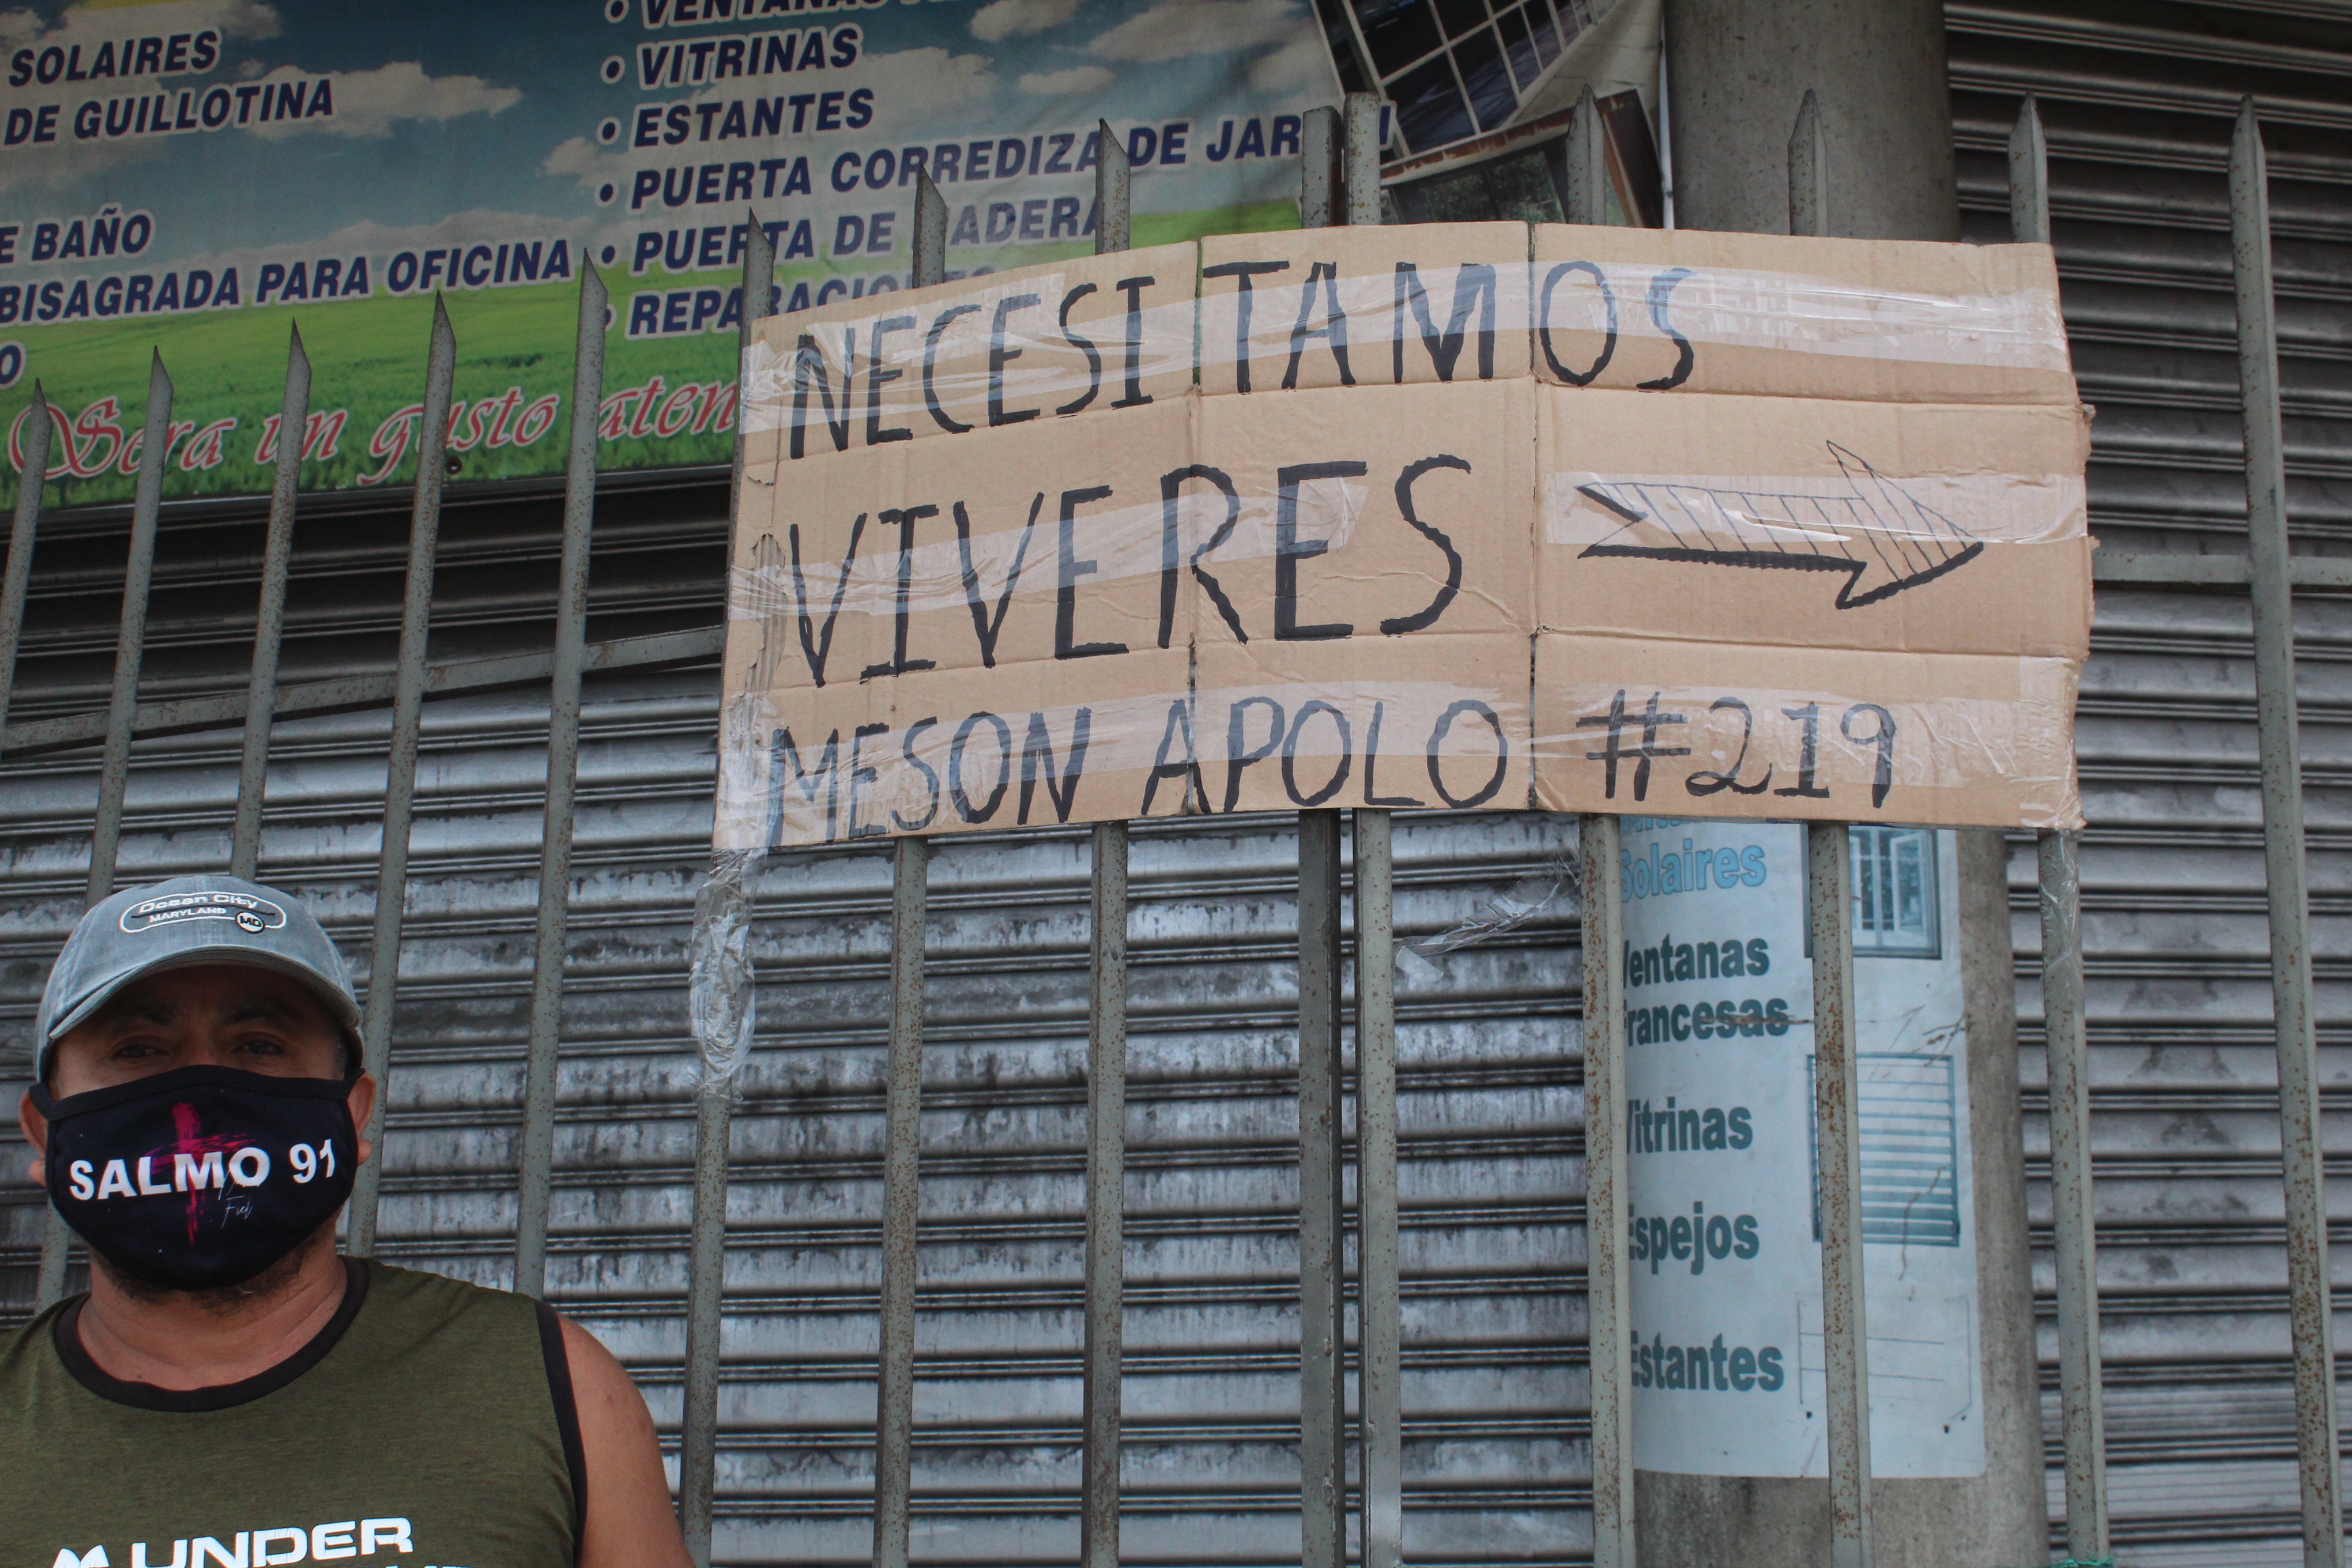 SOLAIRES
DE GUILLOTINA
BAÑO
BISAGRADA PARA OFICINA
• VENTANAS
• VITRINAS
• ESTANTES
• PUERTA CORREDIZA DE
• PUERTA DE
Sera un gusto
NECESITAMOS
VIVERES
MESON APOLO #219
Solaires
Ventanas
Vitrinas
Espejos
Estantes
Ocean City
MARYLAND MD
SALMO 91
UNDER